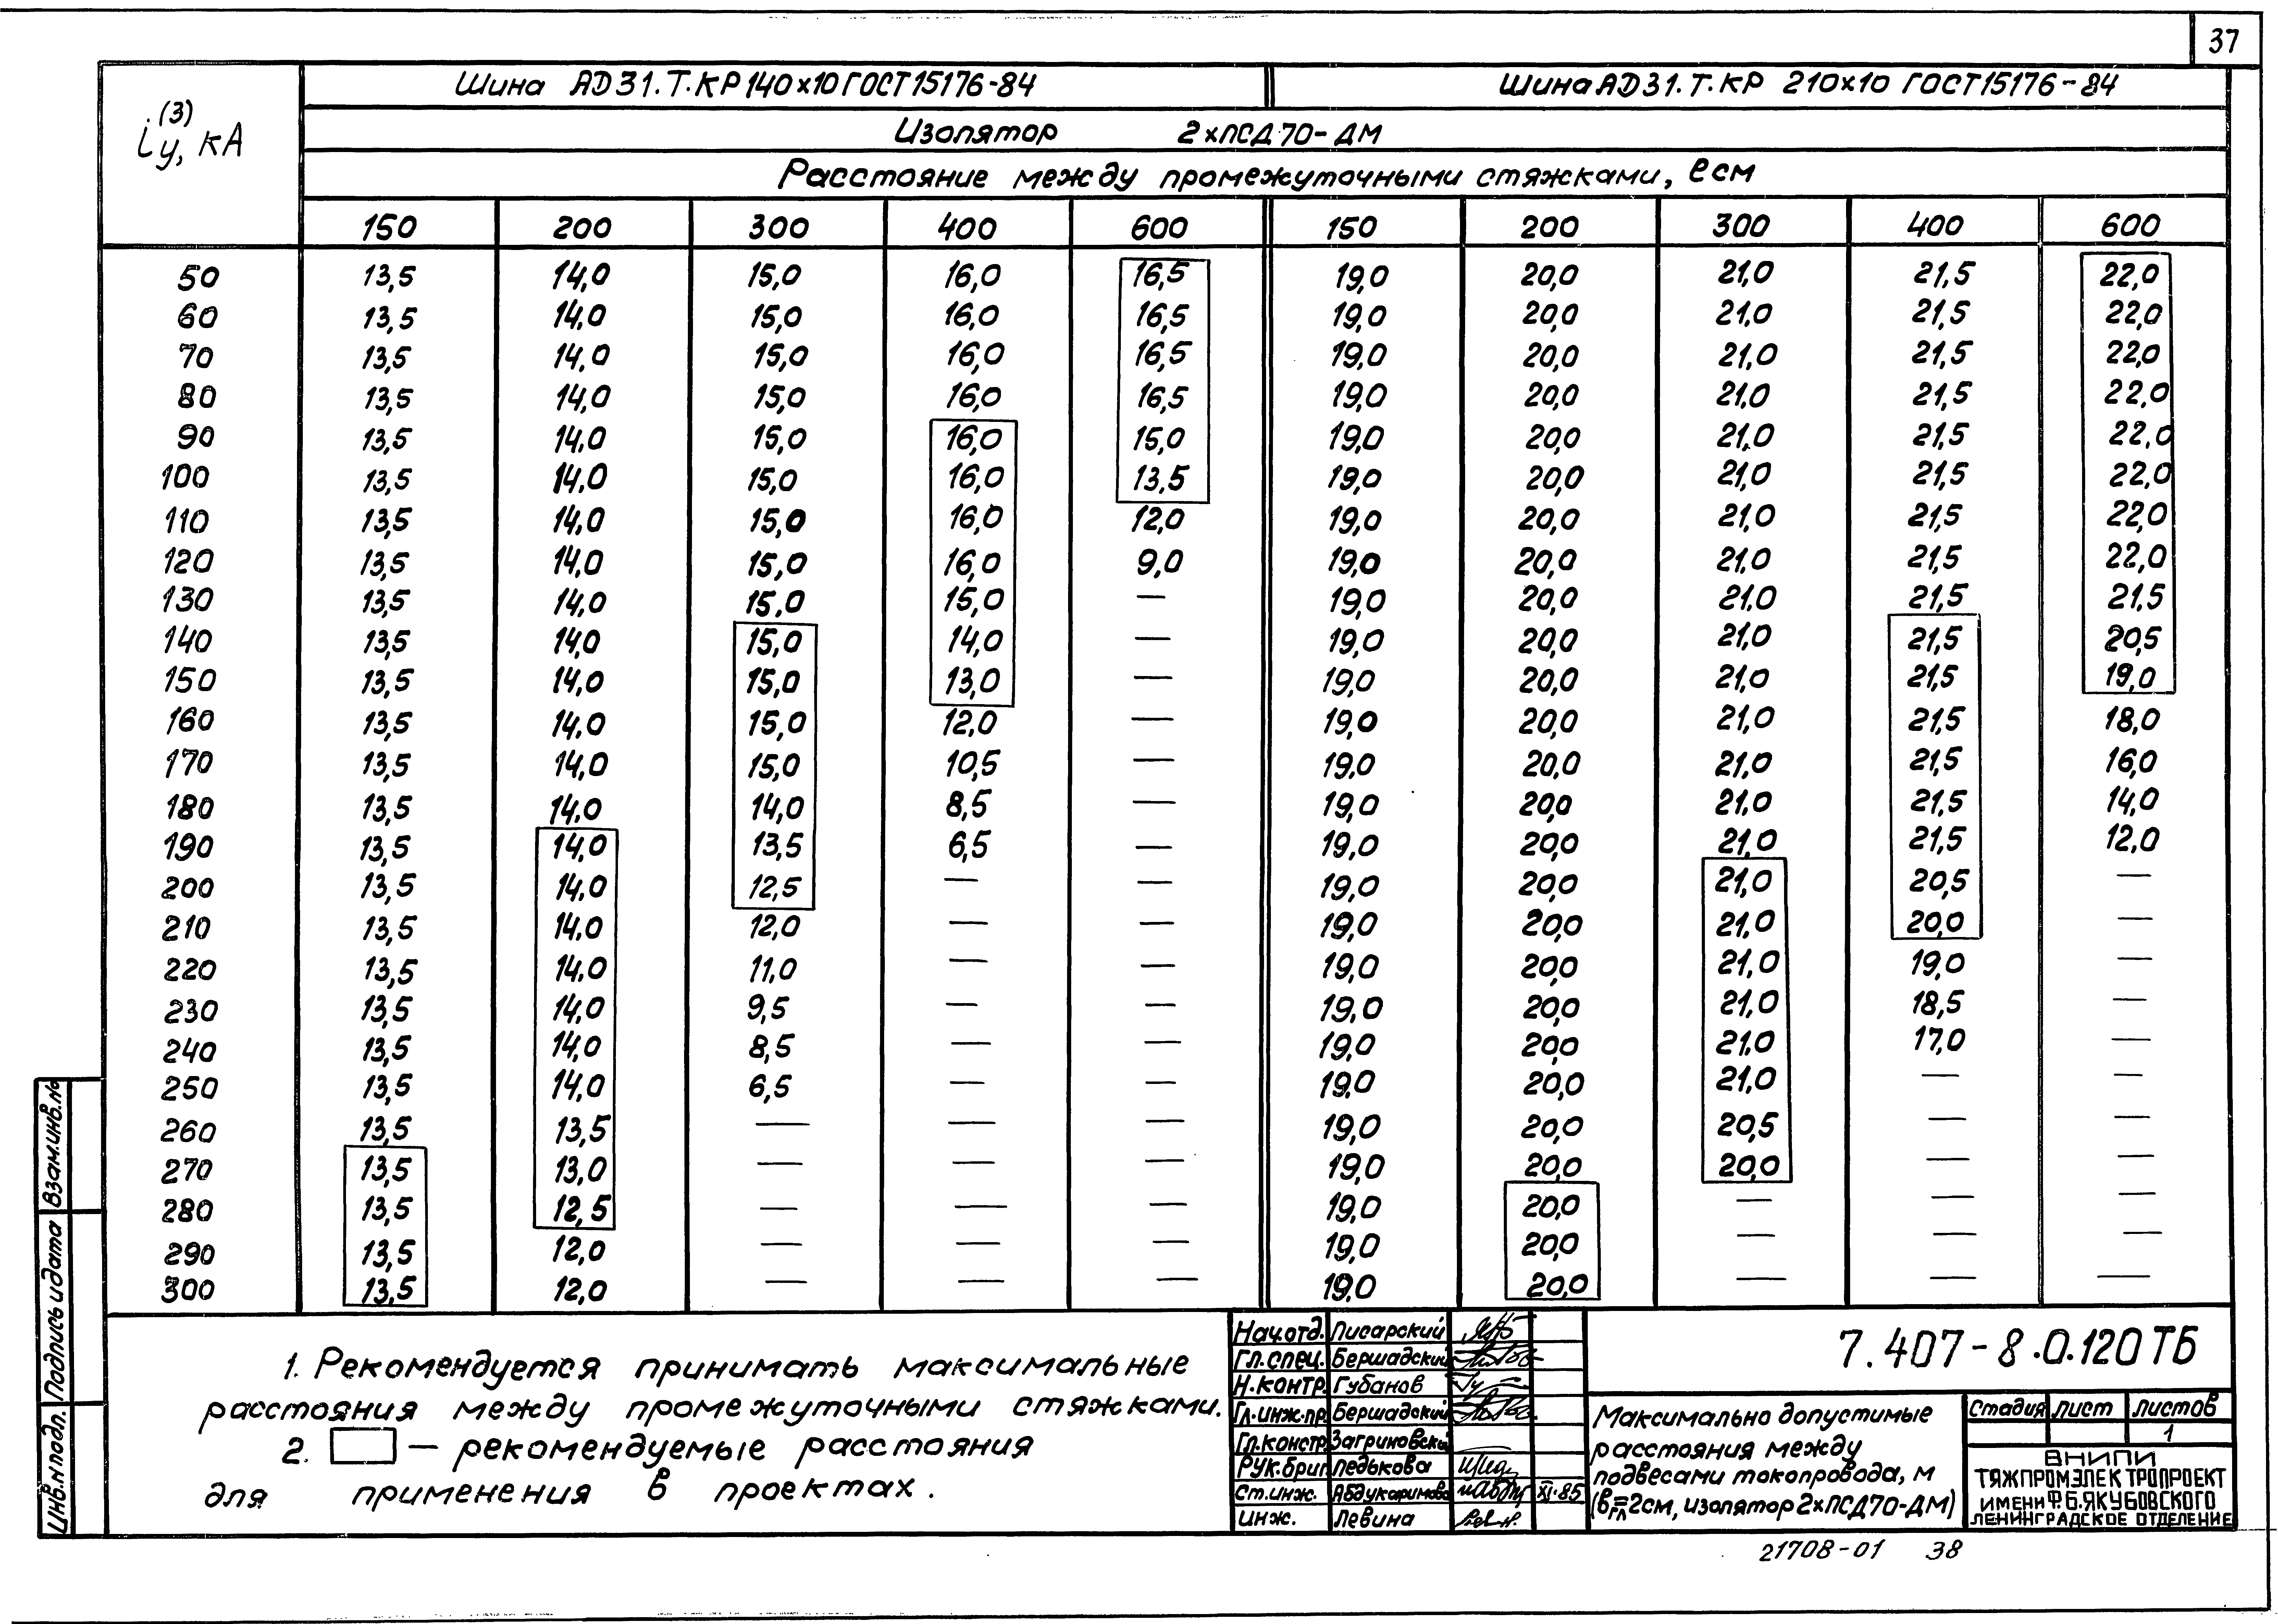 37
i(3)у, кА
Шина АД31.Т.КР 140х10 ГОСТ 15176-84 Шина АД31.Т.КР 210х10 ГОСТ 15176-84
Изолятор 2хПСД70-ДМ
Расстояние между промежуточными стяжками, ℓ см
150 200 300 400 600 150 200 300 400 600
50 13,5 14,0 15,0 16,0 16,5 19,0 20,0 21,0 21,5 22,0
60 13,5 14,0 15,0 16,0 16,5 19,0 20,0 21,0 21,5 22,0
70 13,5 14,0 15,0 16,0 16,5 19,0 20,0 21,0 21,5 22,0
80 13,5 14,0 15,0 16,0 16,5 19,0 20,0 21,0 21,5 22,0
90 13,5 14,0 15,0 16,0 15,0 19,0 20,0 21,0 21,5 22,0
100 13,5 14,0 15,0 16,0 13,5 19,0 20,0 21,0 21,5 22,0
110 13,5 14,0 15,0 16,0 12,0 19,0 20,0 21,0 21,5 22,0
120 13,5 14,0 15,0 16,0 9,0 19,0 20,0 21,0 21,5 22,0
130 13,5 14,0 15,0 15,0 — 19,0 20,0 21,0 21,5 21,5
140 13,5 14,0 15,0 14,0 — 19,0 20,0 21,0 21,5 20,5
150 13,5 14,0 15,0 13,0 — 19,0 20,0 21,0 21,5 19,0
160 13,5 14,0 15,0 12,0 — 19,0 20,0 21,0 21,5 18,0
170 13,5 14,0 15,0 10,5 — 19,0 20,0 21,0 21,5 16,0
180 13,5 14,0 14,0 8,5 — 19,0 20,0 21,0 21,5 14,0
190 13,5 14,0 13,5 6,5 — 19,0 20,0 21,0 21,5 12,0
200 13,5 14,0 12,5 — — 19,0 20,0 21,0 20,5 —
210 13,5 14,0 12,0 — — 19,0 20,0 21,0 20,0 —
220 13,5 14,0 11,0 — — 19,0 20,0 21,0 19,0 —
230 13,5 14,0 9,5 — — 19,0 20,0 21,0 18,5 —
240 13,5 14,0 8,5 — — 19,0 20,0 21,0 17,0 —
250 13,5 14,0 6,5 — — 19,0 20,0 21,0 — —
260 13,5 13,5 — — — 19,0 20,0 20,5 — —
270 13,5 13,0 — — — 19,0 20,0 20,0 — —
280 13,5 12,5 — — — 19,0 20,0 — — —
290 13,5 12,0 — — — 19,0 20,0 — — —
300 13,5 12,0 — — — 19,0 20,0 — — —
1. Рекомендуется принимать максимальные
расстояния между промежуточными стяжками.
2. — рекомендуемые расстояния
для применения в проектах.
Нач.отд. Писарский
Гл.спец. Бершадский
Н.контр. Губанов
Гл.инж.пр. Бершадский
Гл.констр. Загриновский
Рук.бриг. Ледькова
Ст.инж. Абдукаримова XI-85
инж. Левина
7.407-8.0.120ТБ
Максимально допустимые
расстояния между
подвесами токопровода, м
(вгл=2см, изолятор 2хПСД70-ДМ)
Стадия лист листов
1
ВНИПИ
ТЯЖПРОМЭЛЕКТРОПРОЕКТ
ИМЕНИ Ф.Б.ЯКУБОВСКОГО
ЛЕНИНГРАДСКОЕ ОТДЕЛЕНИЕ
21708-01 38
Взам.инв.№
Подпись и дата
Инв.Nподл.